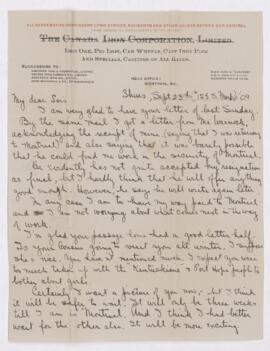 ALL AGREEMENTS CONTINGENT UPON STRIKES, ACCIDENTS AND OTHER CAUSES BEYOND OUR CONTROL
THE CANADA IRON CORPORATION, LIMITED.
IRON ORE, PIG IRON, CAR WHEELS, CAST IRON PIPE
AND SPECIALS, CASTINGS OF ALL KINDS.
SUCCESSORS TO
HEAD OFFICE
MONTREAL
Sept 23rd
My dear Son
I am very glad to have your letter of last Sunday.
By the same mail I got a letter from Mr
acknowledging the receipt of mine (saying that I was returning
to Montreal) and also saying that it was barely possible
that he could find me work in the vicinity of Montreal.
He evidently has not quite accepted my resignation
as final but I hardly think that he will offer anything
good enough. However, he says he will write again later.
In any case I am to have my way paid to Montreal
and I am not worrying about what comes next in the way
of work.
I am glad your passage home had a good letter half.
Is your cousin going to
she's nice. You have not mentioned much. I expect you were
too much taken up with the Kentuckians & Port Hope people to
bother about girls.
Certainly I want a picture of you now, but I think
it will be safer to wait. It will only be three weeks
till I am in Montreal. And I think I had better
wait for the other also. It will be more exciting